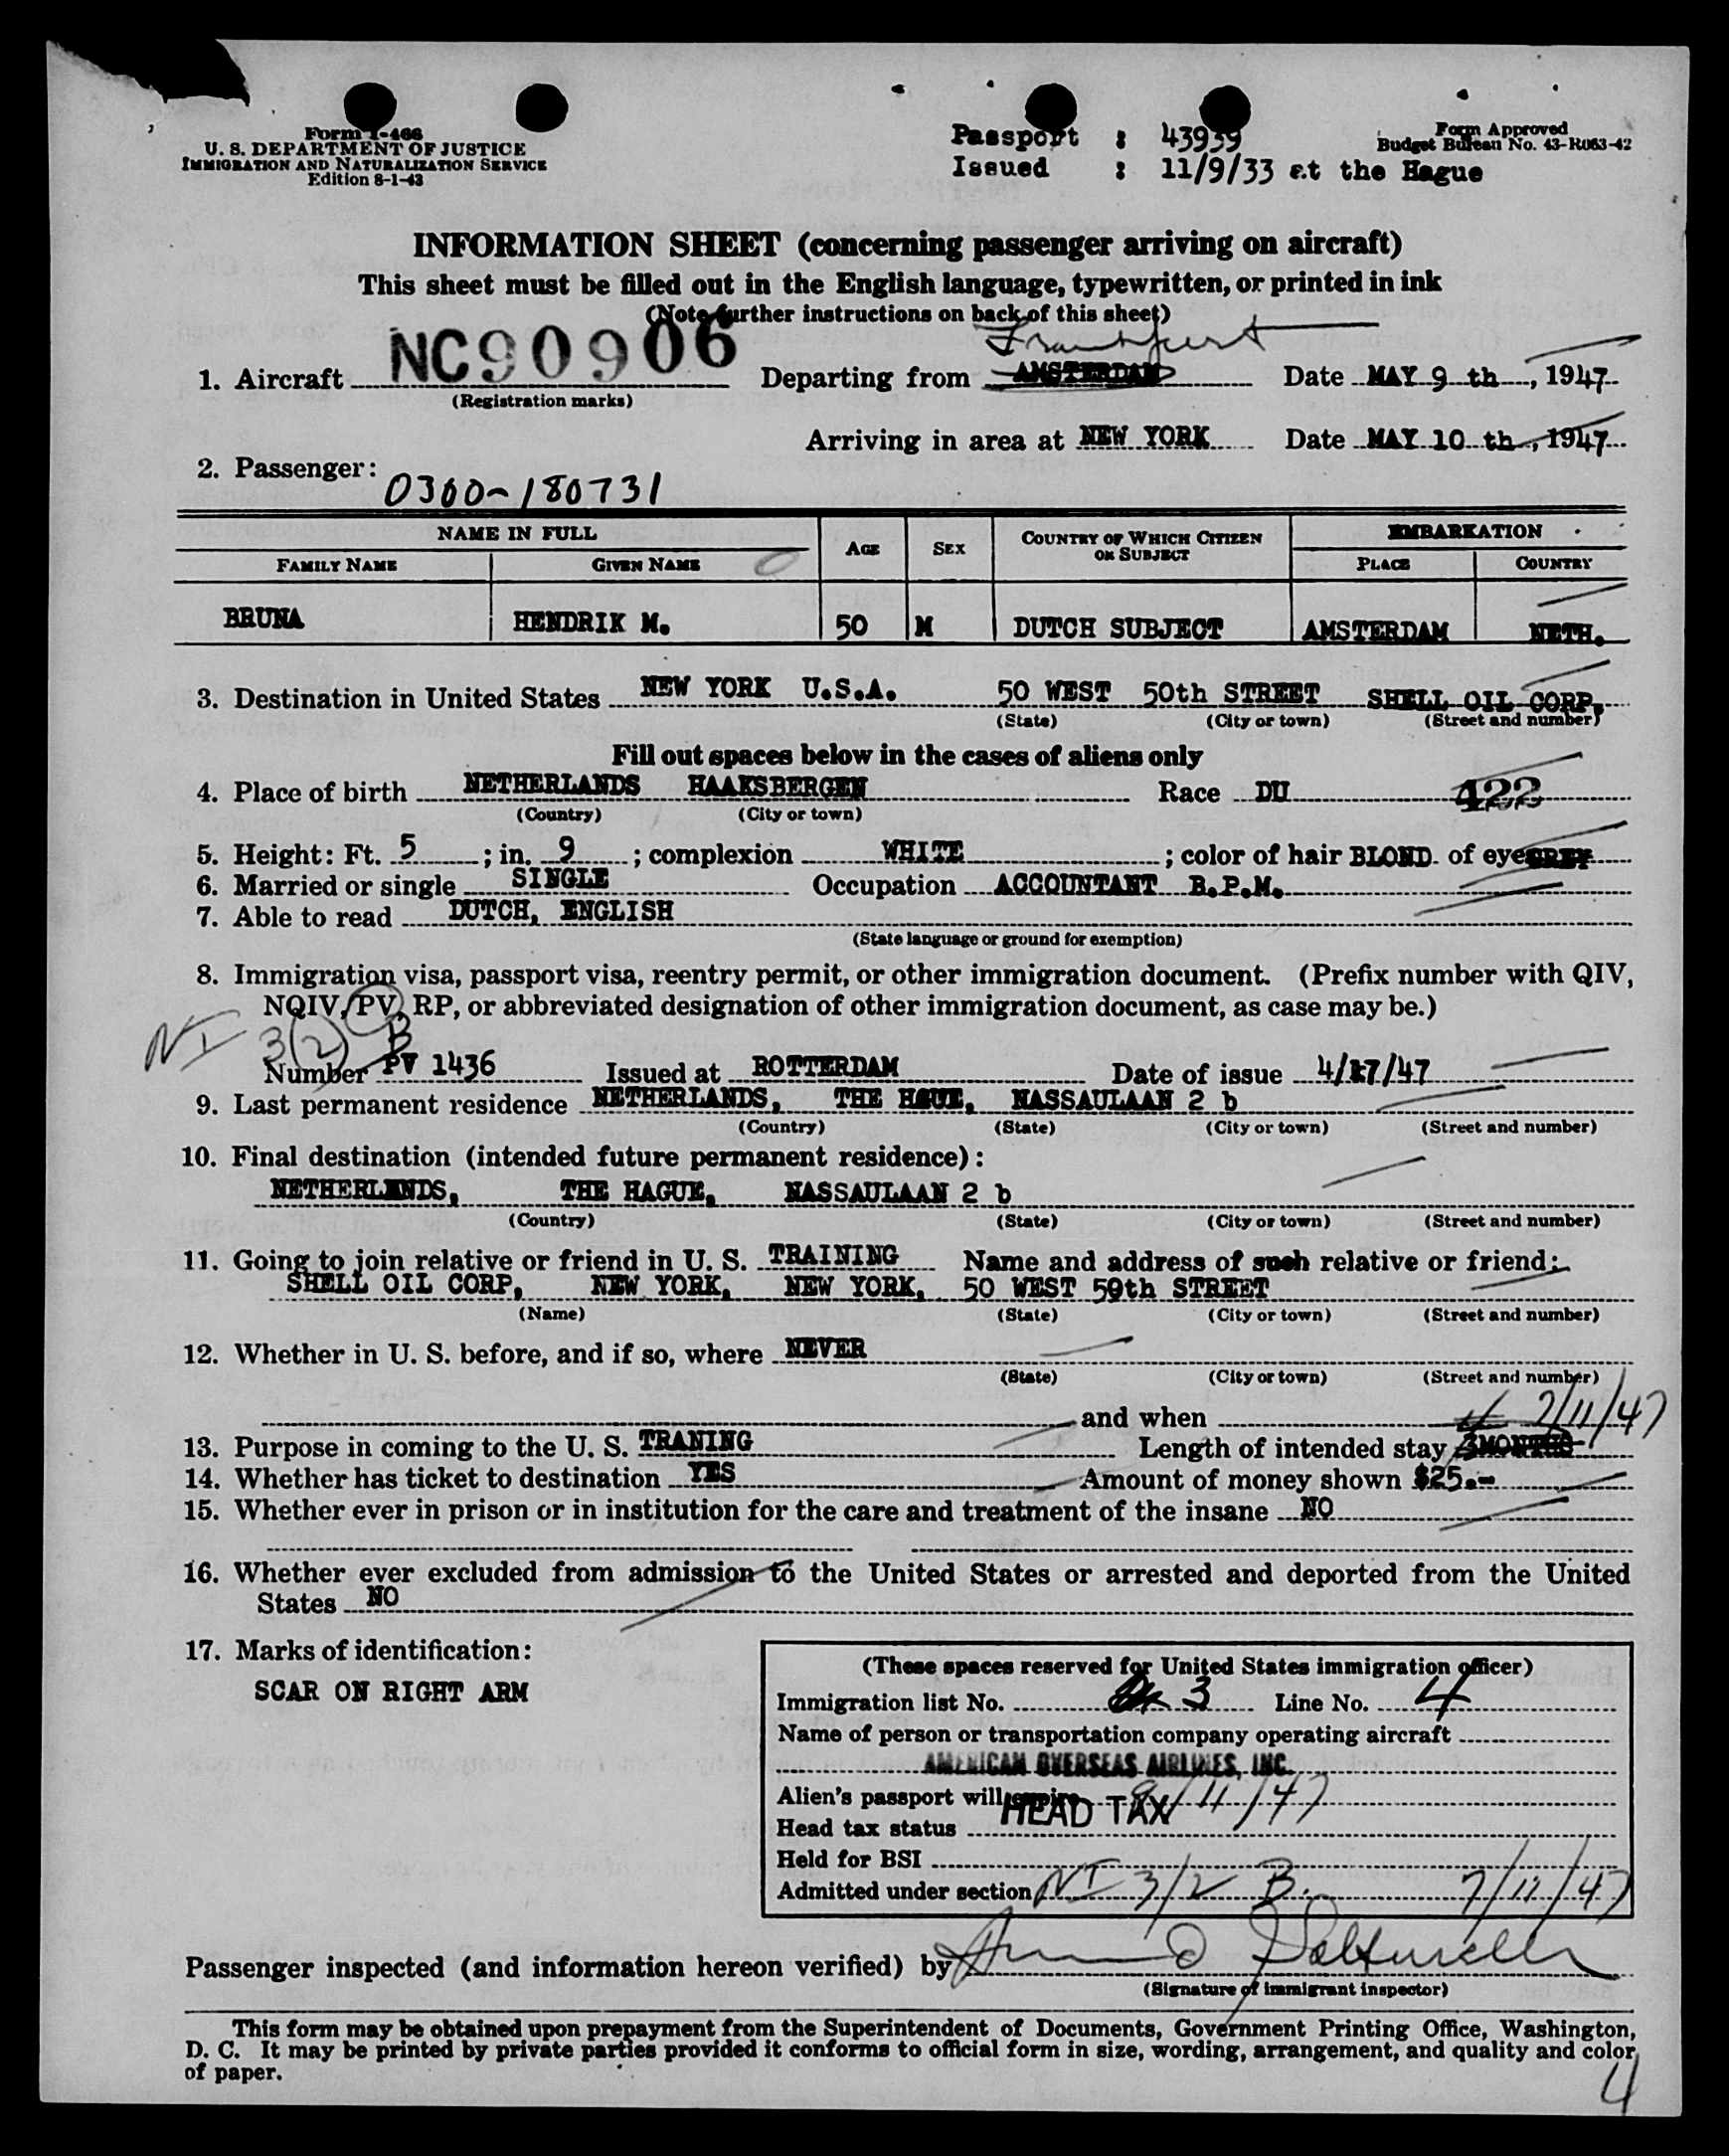 Form I-466
U. S. DEPARTMENT OF JUSTICE
IMMIGRATION AND NATURALIZATION SERVICE
Edition 8-1-43
Passport : 43939
Issued : 11/9/33 at the Hague
Form Approved
Budget Bureau No. 43-R063-42
INFORMATION SHEET (concerning passenger arriving on aircraft)
This sheet must be filled out in the English language, typewritten, or printed in ink
(Note further instructions on back of this sheet)
Frankfurt
1. Aircraft NC90906 Departing from AMSTERDAM Date MAY 9 th, 1947
(Registration marks)
Arriving in area at NEW YORK Date MAY 10 th, 1947
2. Passenger: 0300-180731
NAME IN FULL AGE SEX COUNTRY OF WHICH CITIZEN OR SUBJECT EMBARKATION
FAMILY NAME GIVEN NAME PLACE COUNTRY
BRUNA HENDRIK M. 50 M DUTCH SUBJECT AMSTERDAM NETH.
3. Destination in United States NEW YORK U.S.A. 50 WEST 50th STREET SHELL OIL CORP.
(State) (City or town) (Street and number)
Fill out spaces below in the cases of aliens only
4. Place of birth NETHERLANDS HAAKSBERGEN Race DU 422
(Country) (City or town)
5. Height: Ft. 5; in. 9; complexion WHITE; color of hair BLOND. of eyes GREY
6. Married or single SINGLE Occupation ACCOUNTANT B.P.M.
7. Able to read DUTCH, ENGLISH
(State language or ground for exemption)
8. Immigration visa, passport visa, reentry permit, or other immigration document. (Prefix number with QIV,
NQIV, PV, RP, or abbreviated designation of other immigration document, as case may be.)
NI 3(2) B
Number PV 1436 Issued at ROTTERDAM Date of issue 4/17/47
9. Last permanent residence NETHERLANDS, THE HAUE, NASSAULAAN 2 b
(Country) (State) (City or town) (Street and number)
10. Final destination (intended future permanent residence):
NETHERLANDS, THE HAGUE, NASSAULAAN 2 b
(Country) (State) (City or town) (Street and number)
11. Going to join relative or friend in U. S. TRAINING Name and address of such relative or friend:
SHELL OIL CORP, NEW YORK, NEW YORK, 50 WEST 50th STREET
(Name) (State) (City or town) (Street and number)
12. Whether in U. S. before, and if so, where NEVER
(State) (City or town) (Street and number)
and when 7/11/47
13. Purpose in coming to the U. S. TRANING Length of intended stay 3MONTHS
14. Whether has ticket to destination YES Amount of money shown $25.-
15. Whether ever in prison or in institution for the care and treatment of the insane NO
16. Whether ever excluded from admission to the United States or arrested and deported from the United
States NO
17. Marks of identification:
SCAR ON RIGHT ARM
(These spaces reserved for United States immigration officer)
Immigration list No. 3 Line No. 4
Name of person or transportation company operating aircraft
AMERICAN OVERSEAS AIRLINES, INC.
Alien's passport will expire 9/11/47
Head tax status HEAD TAX
Held for BSI
Admitted under section NI 3/2 B. 7/11/47
Passenger inspected (and information hereon verified) by
(Signature of immigrant inspector)
This form may be obtained upon prepayment from the Superintendent of Documents, Government Printing Office, Washington,
D. C. It may be printed by private parties provided it conforms to official form in size, wording, arrangement, and quality and color
of paper.
4